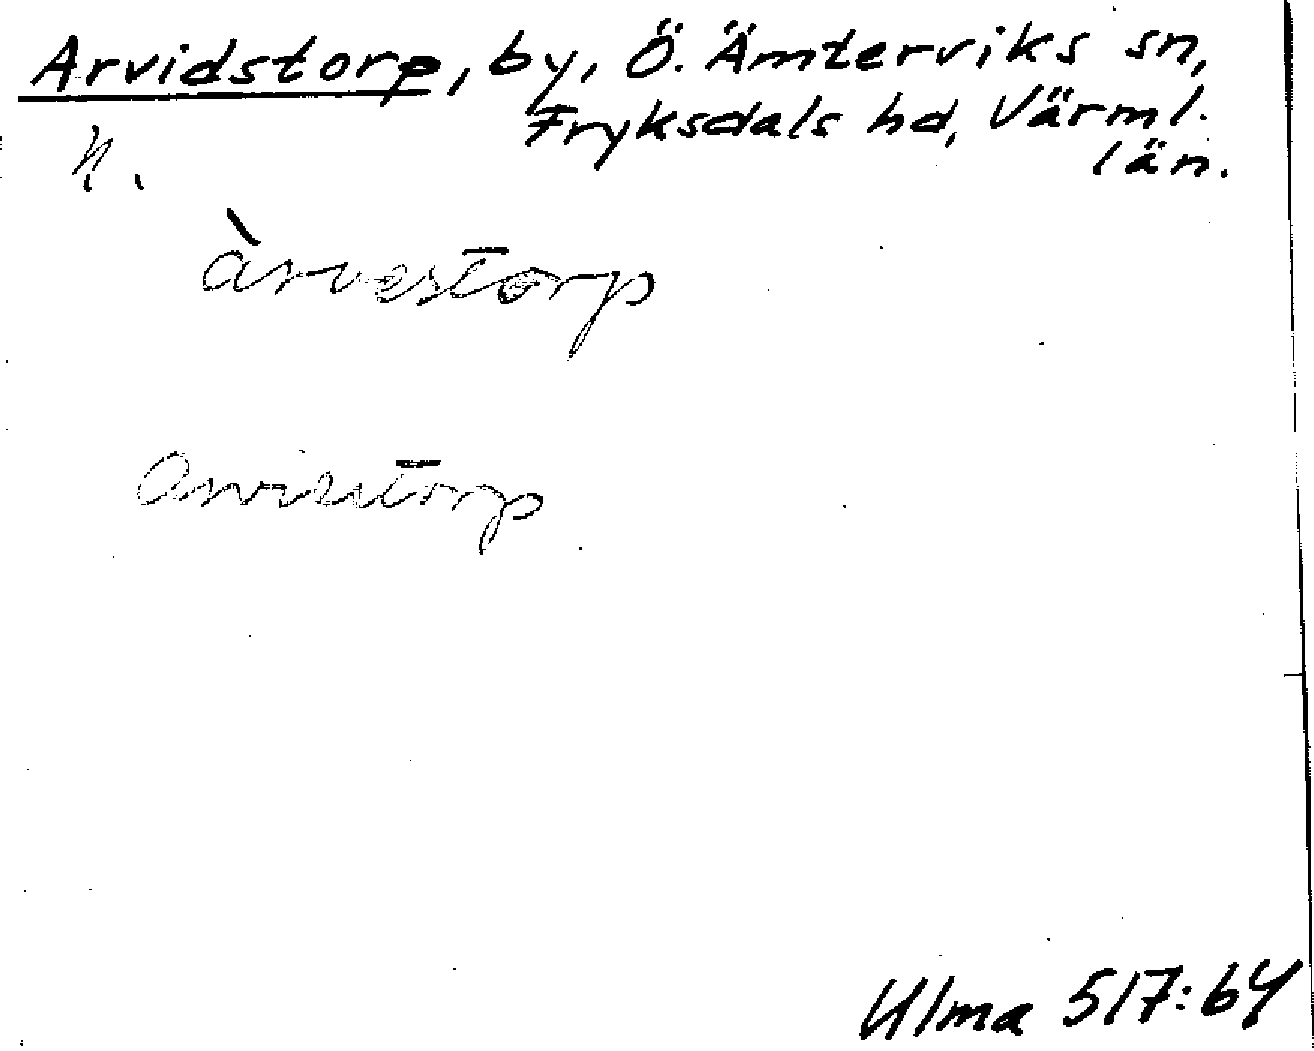 Arvidstorp, by, Ö. Ämterviks sn,
Fryksdals hd, Värml.
län.
n.
àrvestorp
Arvidstorp
Ulma 517:64